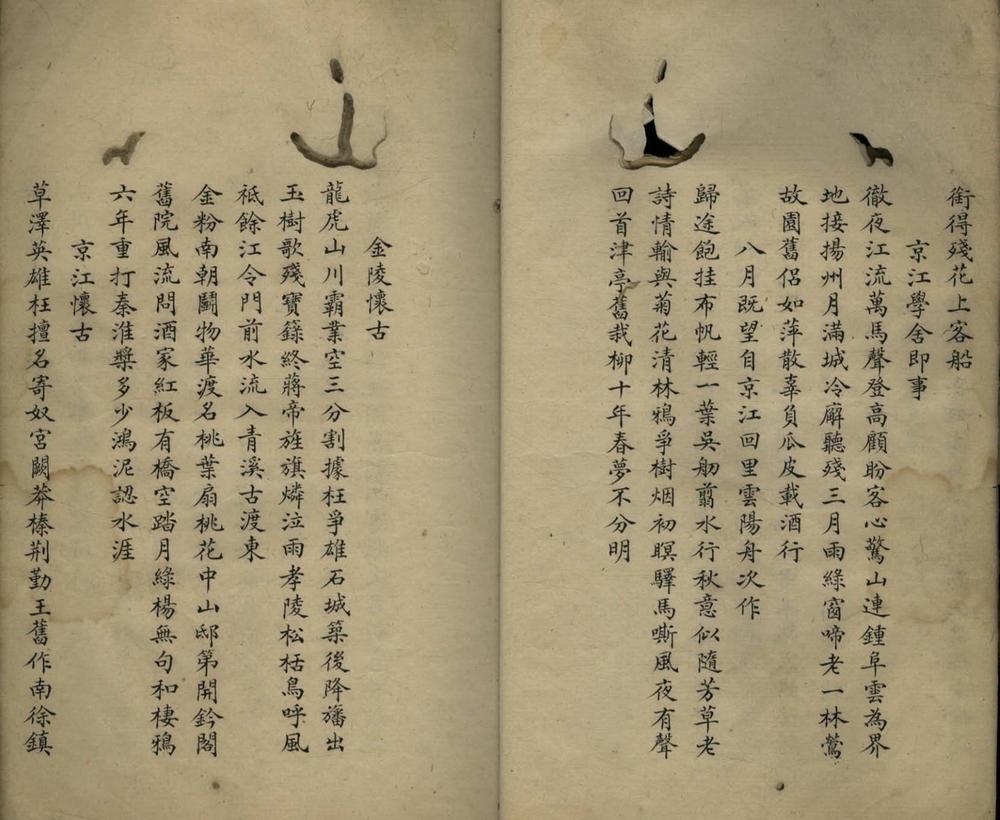 銜得殘花上客船
京江學舍即事
徹夜江流萬馬聲登高顧盼客心驚山連鍾阜雲為界
地接揚州月滿城冷廨聽殘三月雨綠窗啼老一林鶯
故園舊侶如萍散辜負瓜皮載酒行
八月既望自京江回里雲陽舟次作
歸途飽挂布帆輕一葉吳舠翦水行秋意似隨芳草老
詩情輸與菊花清林鴉爭樹烟初暝驛馬嘶風夜有聲
回首津亭舊栽柳十年春夢不分明
金陵懷古
龍虎山川霸業空三分割據枉爭雄石城築後降旛出
玉樹歌殘寶籙終蔣帝旌旗燐泣雨孝陵松栝鳥呼風
祗餘江令門前水流入青溪古渡東
金粉南朝鬭物華渡名桃葉扇桃花中山邸第開鈐閣
舊院風流問酒家紅板有橋空踏月綠楊無句和棲鴉
六年重打秦淮槳多少鴻泥認水涯
京江懷古
草澤英雄枉擅名寄奴宮闕莽榛荆勤王舊作南徐鎮